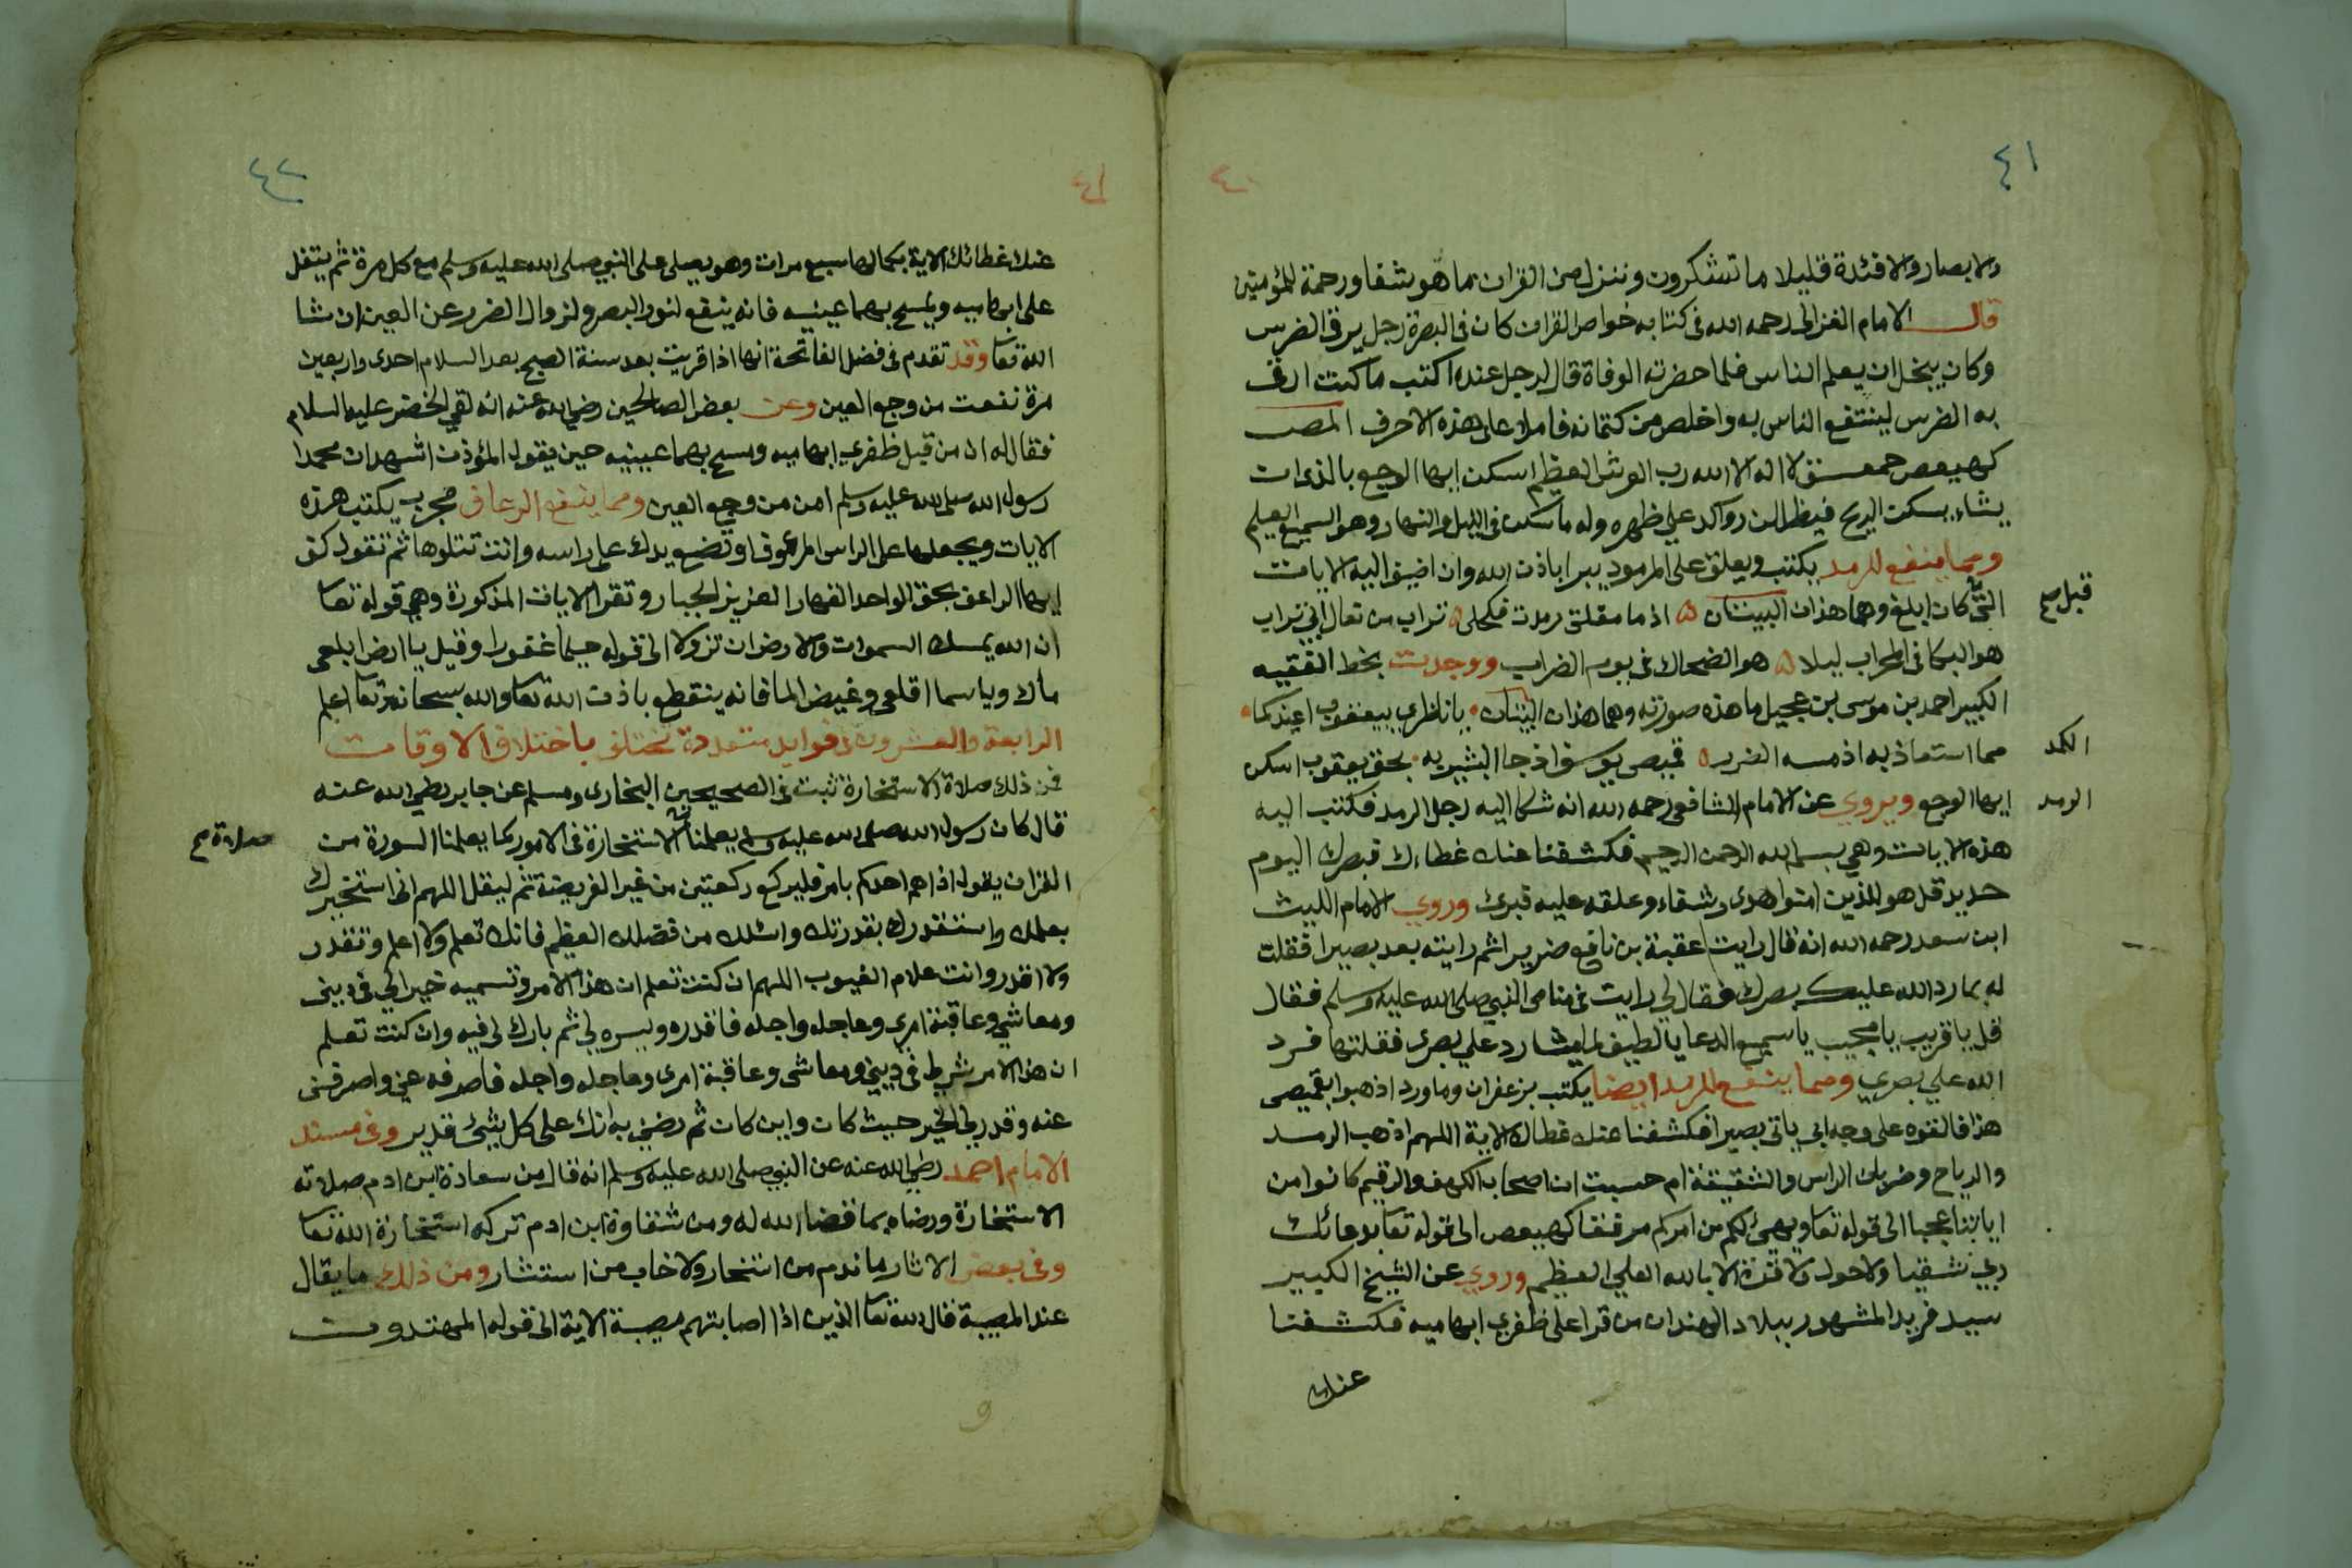 ٤١
٤٠
والابصار والافئدة قليلا ما تشكرون وننزل من القران ما هو شفا ورحمة للمؤمنين
قال الامام الغزالي رحمه الله في كتابه خواص القران كان في البصرة رجل يرقي الضرس
وكان يبخل ان يعلم الناس فلما حضرته الوفاة قال لرجل عنده اكتب ما كنت ارقي
به الضرس لينتفع الناس به واخلص من كتمانه فاملا على هذه الاحرف المص
كهيعص حمعسق لا اله الا الله رب العرش العظيم اسكن ايها الوجع بالذي ان
يشاء يسكن الريح فيظللن رواكد علي ظهره وله ما سكن في الليل والنهار وهو السميع العليم
ومما ينفع للرمد يكتب ويعلق على المرمود يبرا باذن الله وان اضيف اليه الايات
قبل صح
التي كان ابلغ وهما هذان البيتان ه اذا ما مقلتي رمدت فكحلي ه تراب من نعال ابي تراب
هو البكا في المحراب ليلا ه هو الضحاك في يوم الضراب ووجدت بخط الفقيه
الكبير احمد بن موسى بن عجيل ما هذه صورته وهما هذان البيتان • يا ناظري بيعقوب اعيذكما •
الكمد
مما استعاذ به اذ مسه الضر ه قميص يوسف اذ جا البشير به • بحق يعقوب اسكن
الرمد
ايها الوجع ويروي عن الامام الشافعي رحمه الله انه شكا اليه رجل الرمد فكتب اليه
هذه الايات وهي بسم الله الرحمن الرحيم فكشفنا عنك غطاءك فبصرك اليوم
حديد قل هو للذين امنوا هدى وشفاء وعلقه عليه فبرئ وروي الامام الليث
ابن سعد رحمه الله انه قال رايت عقبة بن نافع ضريرا ثم رايته بعد بصيرا فقلت
له بما رد الله عليك بصرك فقال لي رايت في منامي النبي صلى الله عليه وسلم فقال
قل يا قريب يا مجيب يا سميع الدعا يا لطيف لما يشا رد علي بصري فقلتها فرد
الله علي بصري ومما ينفع للرمد ايضا يكتب بزعفران وماورد اذهبوا بقميصي
هذا فالقوه على وجه ابي يات بصيرا فكشفنا عنك غطاك الاية اللهم اذهب الرمد
والرياح وضربان الراس والشقيقة ام حسبت ان اصحاب الكهف والرقيم كانوا من
اياتنا عجبا الى قوله تعا ويهيئ لكم من امركم مرفقا كهيعص الى قوله تعا بدعائك
ربي شقيا ولا حول ولا قوة الا بالله العلي العظيم وروي عن الشيخ الكبير
سيد فريد المشهور ببلاد الهند ان من قرا على ظفري ابهاميه فكشفنا
عنك
٤١
٤٢
عنك غطائك الاية بكمالها سبع مرات وهو يصلي على النبي صلى الله عليه وسلم مع كل مرة ثم يتفل
على ابهاميه ويمسح بهما عينيه فانه ينفع لنور البصر ولزوال الضرر عن العين ان شا
الله تعا وقد تقدم في فضل الفاتحة انها اذا قريت بعد سنة الصبح بعد السلام احدى واربعين
مرة نفعت من وجع العين وعن بعض الصالحين رضي الله عنه انه لقي الخضر عليه السلام
فقال له ان من قبل ظفري ابهاميه ومسح بهما عينيه حين يقول المؤذن اشهد ان محمدا
رسول الله صلى الله عليه وسلم امن من وجع العين ومما ينفع الرعاف مجرب يكتب هذه
الايات ويجعلها على الراس المرعوف او تضع يدك على راسه وانت تتلوها ثم تقول كف
ايها الراعف بحق الواحد القهار العزيز الجبار وتقرا الايات المذكورة وهي قوله تعا
ان الله يمسك السموات والارض ان تزولا الى قوله حليما غفورا وقيل يا ارض ابلعي
ماك ويا سما اقلعي وغيض الما فانه ينقطع باذن الله تعا والله سبحانه وتعا اعلم
الرابعة والعشرون في فوايد متعددة تختلف باختلاف الاوقات
فمن ذلك صلاة الاستخارة ثبت في الصحيحين البخاري ومسلم عن جابر رضي الله عنه
قال كان رسول الله صلى الله عليه وسلم يعلمنا الاستخارة في الامور كما يعلمنا السورة من
صلاة صح
القران يقول اذا هم احدكم بامر فليركع ركعتين من غير الفريضة ثم ليقل اللهم اني استخيرك
بعلمك واستقدرك بقدرتك واسئلك من فضلك العظيم فانك تعلم ولا اعلم وتقدر
ولا اقدر وانت علام الغيوب اللهم ان كنت تعلم ان هذا الامر وتسميه خيرا لي في ديني
ومعاشي وعاقبة امري وعاجله واجله فاقدره ويسره لي ثم بارك لي فيه وان كنت تعلم
ان هذا الامر شر لي في ديني ومعاشي وعاقبة امري وعاجله واجله فاصرفه عني واصرفني
عنه وقدر لي الخير حيث كان واين كان ثم رضني به انك على كل شيئ قدير وفي مسند
الامام احمد رضي الله عنه عن النبي صلى الله عليه وسلم انه قال من سعادة ابن ادم صلاته
الاستخارة ورضاه بما قضا الله له ومن شقاوة ابن ادم تركه استخارة الله تعا
وفي بعض الاثار ما ندم من استخار ولا خاب من استشار ومن ذلك ما يقال
عند المصيبة قال الله تعا الذين اذا اصابتهم مصيبة الاية الى قوله المهتدون